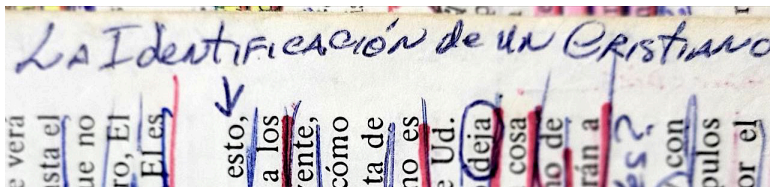 La Identificación de un Cristiano
verá
asta el
ue no
ro, El
El es
esto,
a los
ente,
cómo
ta de
no es
e Ud.
deja
cosa
no de
rán a
con
pulos
or el